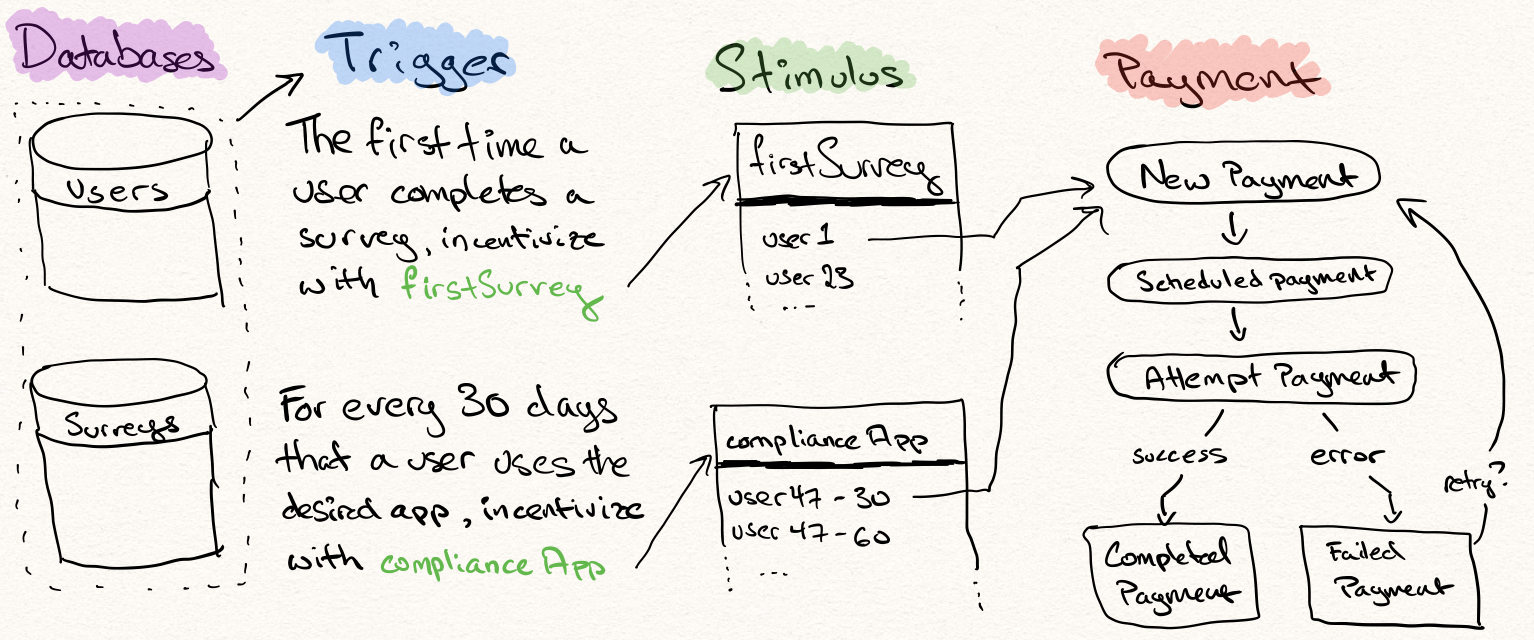 Databases
Trigger
Stimulus
Payment
Users
Surveys
The first time a
user completes a
survey, incentivize
with firstSurvey
For every 30 days
that a user uses the
desired app, incentivize
with complianceApp
firstSurvey
user 1
user 23
...
complianceApp
user 47 - 30
user 47 - 60
...
New Payment
Scheduled payment
Attempt Payment
success
error
retry?
Completed
Payment
Failed
Payment